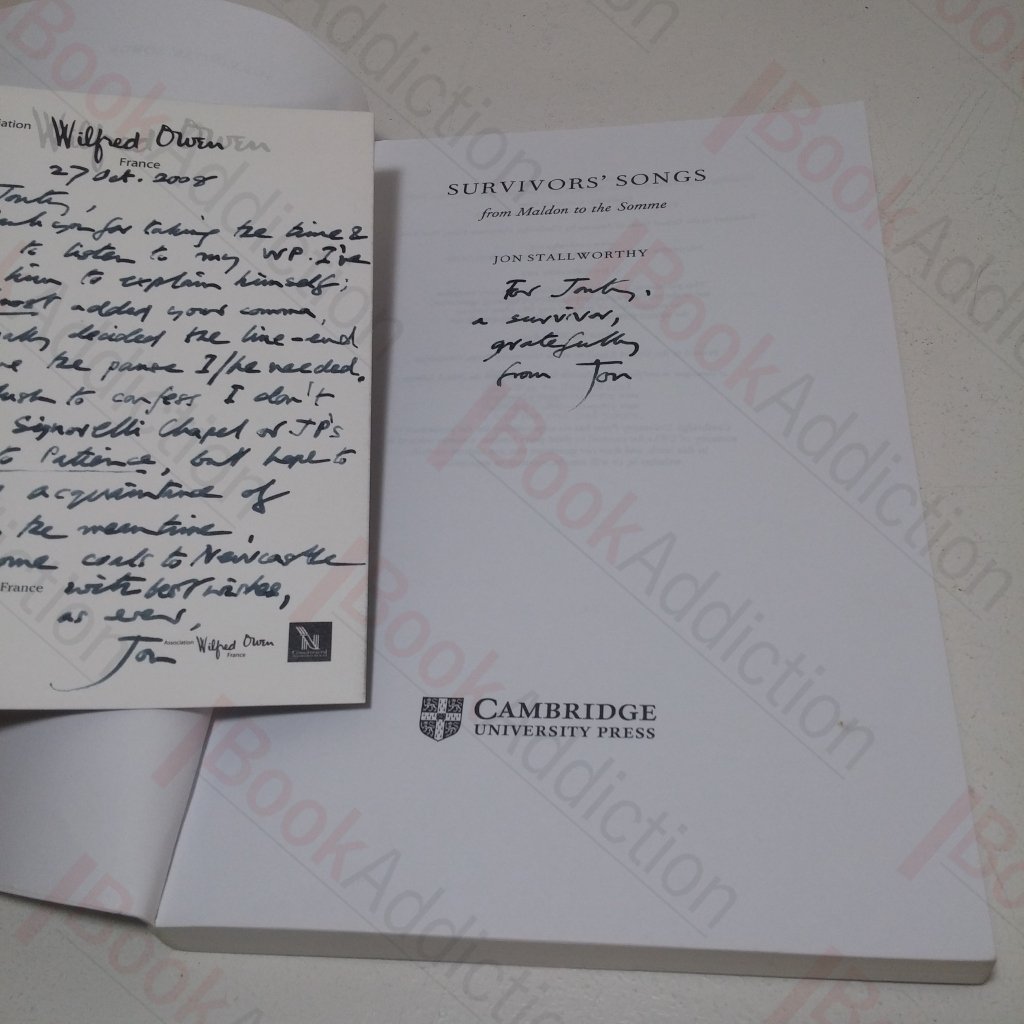 Wilfred Owen
France
27 Oct. 2008
Jonty,
for taking the time &
to listen to my WP. I've
him to explain himself;
most added your comma,
decided the line-end
the pause I/he needed.
to confess I don't
Signorelli Chapel or JP's
to Patience, but hope to
acquaintance of
the meantime,
coals to Newcastle
France
with best wishes,
as ever,
Jon
Association Wilfred Owen
France
SURVIVORS' SONGS
from Maldon to the Somme
JON STALLWORTHY
For Jonty,
a survivor,
gratefully
from Jon
CAMBRIDGE
UNIVERSITY PRESS
BookAddiction